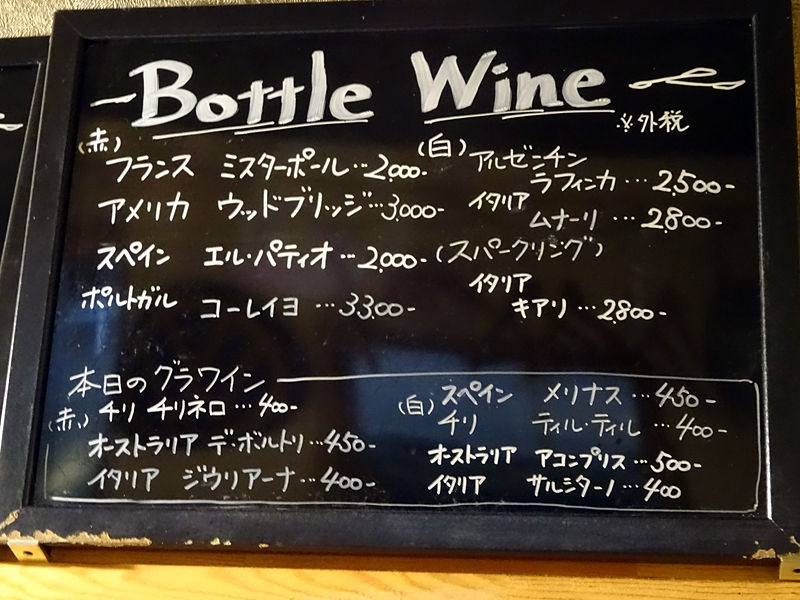 Bottle Wine
※外税
(赤)
フランス ミスターポール…2,000-
アメリカ ウッドブリッジ…3,000-
スペイン エル・パティオ…2,000-
ポルトガル コーレイヨ…3,300-
(白) アルゼンチン
ラフィンカ…2,500-
イタリア
ムナーリ…2,800-
(スパークリング)
イタリア
キアリ…2,800-
本日のグラワイン
(赤) チリ チリネロ…400-
オーストラリア デ・ボルトリ…450-
イタリア ジウリアーナ…400-
(白) スペイン メリナス…450-
チリ ティル・ティル…400-
オーストラリア アコンプリス…500-
イタリア サルシターノ…400